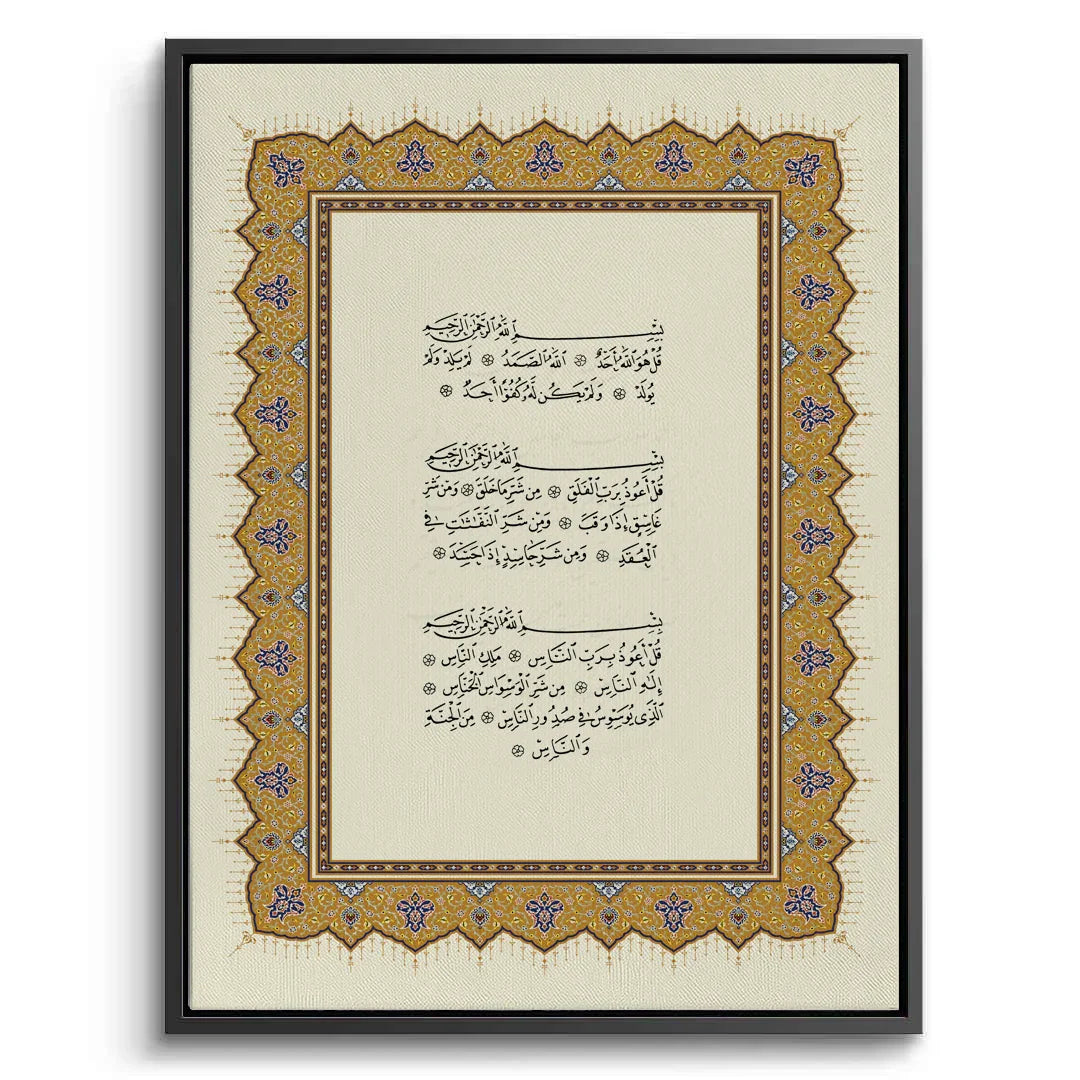 بِسْمِ ٱللَّهِ ٱلرَّحْمَٰنِ ٱلرَّحِيمِ
قُلْ هُوَ ٱللَّهُ أَحَدٌ ۝ ٱللَّهُ ٱلصَّمَدُ ۝ لَمْ يَلِدْ وَلَمْ
يُولَدْ ۝ وَلَمْ يَكُن لَّهُۥ كُفُوًا أَحَدٌ ۝
بِسْمِ ٱللَّهِ ٱلرَّحْمَٰنِ ٱلرَّحِيمِ
قُلْ أَعُوذُ بِرَبِّ ٱلْفَلَقِ ۝ مِن شَرِّ مَا خَلَقَ ۝ وَمِن شَرِّ
غَاسِقٍ إِذَا وَقَبَ ۝ وَمِن شَرِّ ٱلنَّفَّٰثَٰتِ فِى
ٱلْعُقَدِ ۝ وَمِن شَرِّ حَاسِدٍ إِذَا حَسَدَ ۝
بِسْمِ ٱللَّهِ ٱلرَّحْمَٰنِ ٱلرَّحِيمِ
قُلْ أَعُوذُ بِرَبِّ ٱلنَّاسِ ۝ مَلِكِ ٱلنَّاسِ ۝
إِلَٰهِ ٱلنَّاسِ ۝ مِن شَرِّ ٱلْوَسْوَاسِ ٱلْخَنَّاسِ ۝
ٱلَّذِى يُوَسْوِسُ فِى صُدُورِ ٱلنَّاسِ ۝ مِنَ ٱلْجِنَّةِ
وَٱلنَّاسِ ۝